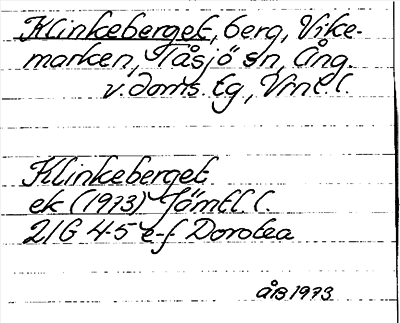 Klinkeberget, berg, Vike-
marken, Tåsjö sn, Ång.
v. doms. tg, Vrnl. l.
Klinkeberget
ek (1973) Jämtl. l.
21G 4-5 e-f Dorotea
ÅB 1973